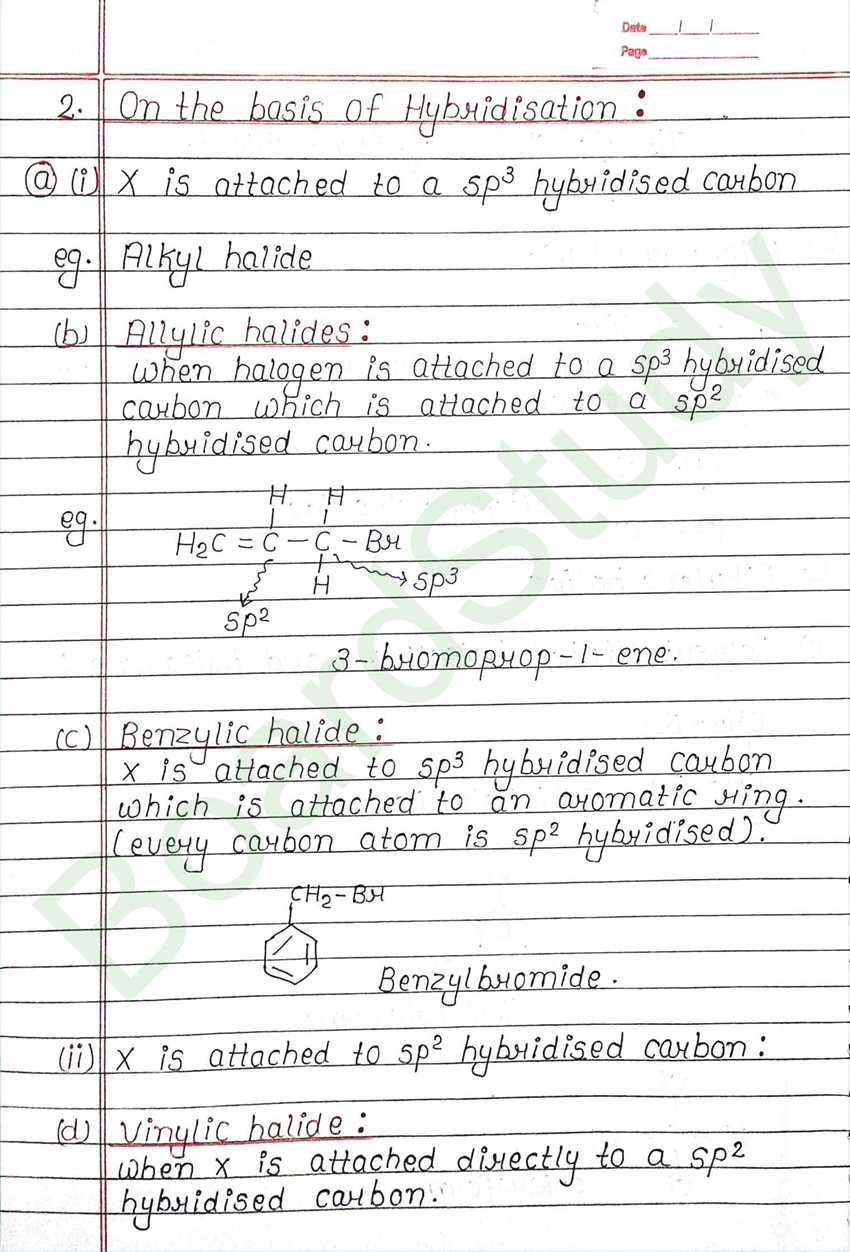 Date / /
Page
2. On the basis of Hybridisation :
(a) (i) X is attached to a sp³ hybridised carbon
eg. Alkyl halide
(b) Allylic halides :
when halogen is attached to a sp³ hybridised
carbon which is attached to a sp²
hybridised carbon.
H H
eg. H₂C = C – C – Br
H sp³
sp²
3-bromoprop-1-ene.
(c) Benzylic halide :
X is attached to sp³ hybridised carbon
which is attached to an aromatic ring.
(every carbon atom is sp² hybridised).
CH₂-Br
Benzylbromide.
(ii) X is attached to sp² hybridised carbon :
(d) Vinylic halide :
when X is attached directly to a sp²
hybridised carbon.
BoardStudy